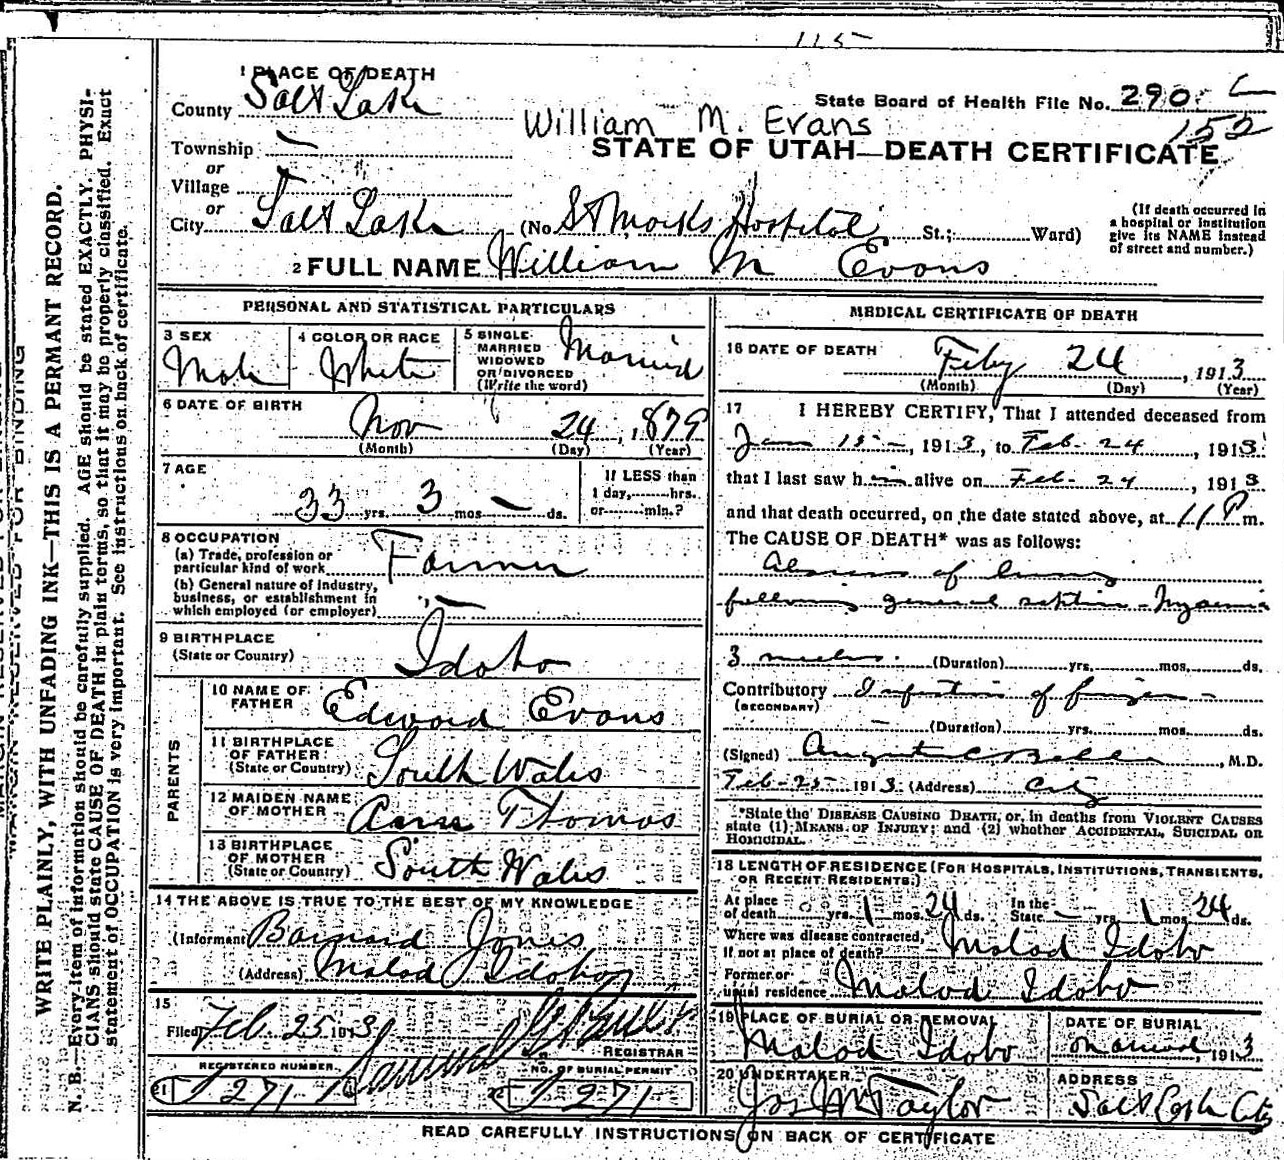 115
1 PLACE OF DEATH
County Salt Lake
State Board of Health File No. 290 C
152
William M. Evans
STATE OF UTAH—DEATH CERTIFICATE
Township —
or
Village
or
City Salt Lake (No. St Marks Hospital St.; Ward)
(If death occurred in a hospital or institution give its NAME instead of street and number.)
2 FULL NAME William M Evans
PERSONAL AND STATISTICAL PARTICULARS
3 SEX Male
4 COLOR OR RACE White
5 SINGLE MARRIED WIDOWED OR DIVORCED (Write the word) Married
6 DATE OF BIRTH Nov 24, 1879
(Month) (Day) (Year)
7 AGE 33 yrs. 3 mos. — ds.
If LESS than 1 day, hrs. or min.?
8 OCCUPATION
(a) Trade, profession or particular kind of work Farmer
(b) General nature of industry, business, or establishment in which employed (or employer) —
9 BIRTHPLACE (State or Country) Idaho
PARENTS
10 NAME OF FATHER Edward Evans
11 BIRTHPLACE OF FATHER (State or Country) South Wales
12 MAIDEN NAME OF MOTHER Ann Thomas
13 BIRTHPLACE OF MOTHER (State or Country) South Wales
14 THE ABOVE IS TRUE TO THE BEST OF MY KNOWLEDGE
(Informant Barnard Jones
(Address) Malad Idaho
15
Filed Feb. 25 1913
REGISTRAR
REGISTERED NUMBER. NO. OF BURIAL PERMIT
21 271 22 271
MEDICAL CERTIFICATE OF DEATH
16 DATE OF DEATH Feby 24, 1913
(Month) (Day) (Year)
17 I HEREBY CERTIFY, That I attended deceased from
Jan 15 —, 1913, to Feb. 24, 1913
that I last saw him alive on Feb. 24, 1913
and that death occurred, on the date stated above, at 11 P m.
The CAUSE OF DEATH* was as follows:
Abscess of lung
following general
3 weeks. (Duration) yrs. mos. ds.
Contributory Infection of finger —
(SECONDARY)
— (Duration) yrs. mos. ds.
(Signed) , M.D.
Feb-25 1913 (Address) City
*State the DISEASE CAUSING DEATH, or, in deaths from VIOLENT CAUSES
state (1) MEANS OF INJURY; and (2) whether ACCIDENTAL, SUICIDAL OR
HOMICIDAL.
18 LENGTH OF RESIDENCE (FOR HOSPITALS, INSTITUTIONS, TRANSIENTS,
OR RECENT RESIDENTS.)
At place of death yrs. 1 mos. 24 ds. In the State — yrs. 1 mos. 24 ds.
Where was disease contracted, If not at place of death? Malad Idaho
Former or usual residence Malad Idaho
19 PLACE OF BURIAL OR REMOVAL Malad Idaho
DATE OF BURIAL on arrival, 1913
20 UNDERTAKER Jos Wm Taylor
ADDRESS Salt Lake City
READ CAREFULLY INSTRUCTIONS ON BACK OF CERTIFICATE
WRITE PLAINLY, WITH UNFADING INK—THIS IS A PERMANT RECORD.
N. B.—Every item of information should be carefully supplied. AGE should be stated EXACTLY. PHYSI-
CIANS should state CAUSE OF DEATH in plain terms, so that it may be properly classified. Exact
statement of OCCUPATION is very important. See instructions on back of certificate.